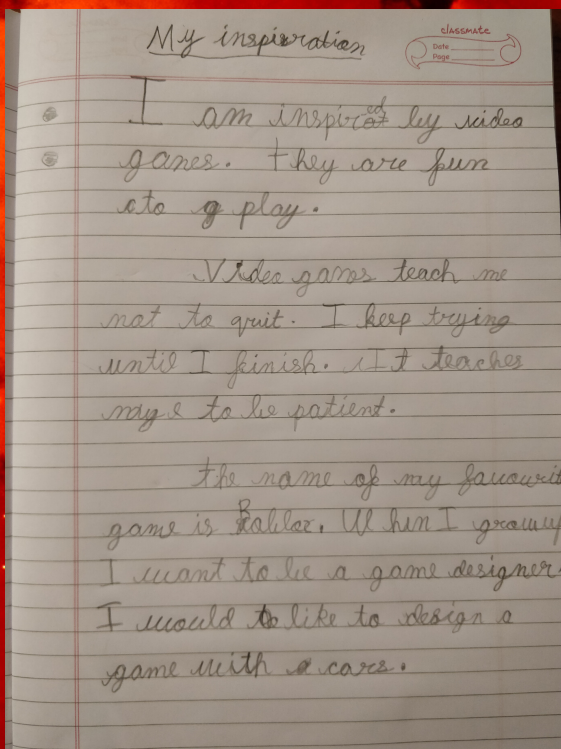 My inspiration
classmate
Date
Page
I am inspired by video
games. they are fun
to play.
Video games teach me
not to quit. I keep trying
until I finish. It teaches
me to be patient.
the name of my favourit
game is Roblox. Whin I grow up
I want to be a game designer.
I would to like to design a
game with a cars.